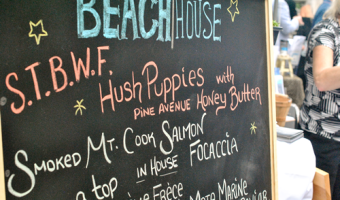 BEACH HOUSE
S.T.B.W.F.
Hush Puppies with
Pine Avenue Honey Butter
Smoked Mt. Cook Salmon
a top in house Focaccia
Marine